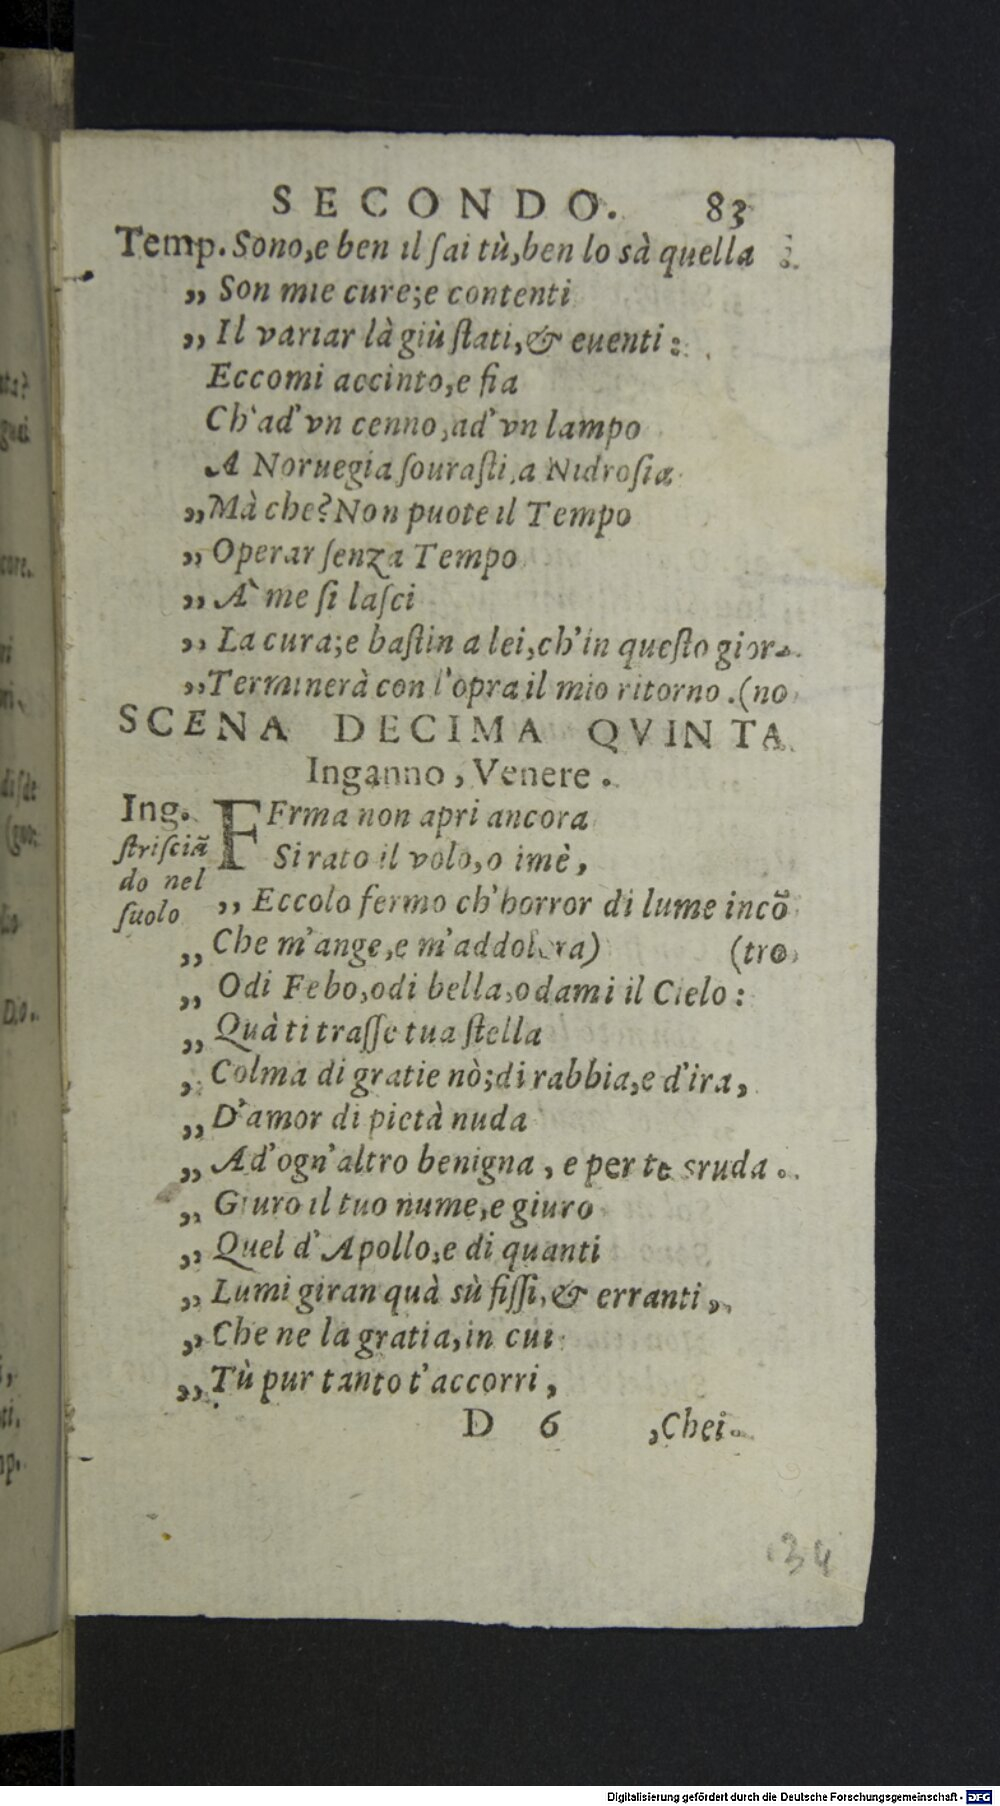 SECONDO. 83
Temp. Sono,e ben il ſai tù,ben lo sà quella
„ Son mie cure;e contenti
„ Il variar là giù ſtati,& euenti:
Eccomi accinto,e fia
Ch'ad' vn cenno,ad' vn lampo
A Noruegia ſouraſti,a Nidroſia
„Mà che? Non puote il Tempo
„ Operar ſenza Tempo
„ A' me ſi laſci
„ La cura;e baſtin a lei,ch'in queſto gior-
„Terminerà con l'opra il mio ritorno.(no
SCENA DECIMA QVINTA
Inganno, Venere.
Ing. FErma non apri ancora
ſtriſciã Si rato il volo,o imè,
do nel
ſuolo „ Eccolo fermo ch'horror di lume incõ
„ Che m'ange,e m'addolora) (tro
„ Odi Febo,odi bella,odami il Cielo:
„ Quà ti traſſe tua ſtella
„ Colma di gratie nò;di rabbia,e d'ira,
„ D'amor di pietà nuda
„ Ad'ogn'altro benigna, e per te sruda.
„ Giuro il tuo nume,e giuro
„ Quel d'Apollo,e di quanti
„ Lumi giran quà sù fiſſi,& erranti,
„ Che ne la gratia,in cui
„ Tù pur tanto t'accorri,
D 6 ,Chei-
34
Digitalisierung gefördert durch die Deutsche Forschungsgemeinschaft - DFG